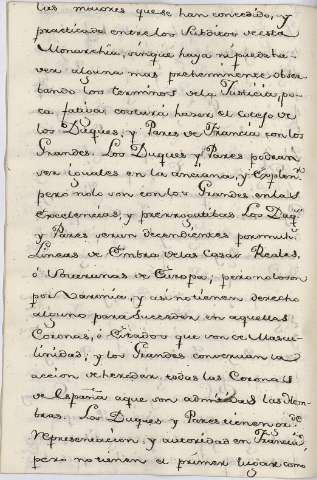 las maiores que se han concedido, y
practicado entre los Subditos de esta
Monarchia, sin que haya ni pueda ha-
ver alguna mas preheminente obser-
bando los terminos de la Justicia, po-
ca fatiga costará haser el Cotejo de
los Duques, y Pares de Francia con los
Grandes. Los Duques y Pares podran
ser iguales en la anciana, y
pero no lo son con los Grandes en las
Excelencias, y prerrogatibas. Los Duqs
y Pares seran decendientes por mill
Lineas de Embra de las Casas Reales,
ó Soveranas de Europa; pero no lo son
por Varonia, y asi no tienen derecho
alguno para Susceder en aquellas
Coronas, ó Estados que son de Mascu-
linidad; y los Grandes conservan la
accion de heredar todas las Coronas
de España a que son admitidas las Hem-
bras. Los Duques y Pares tienen
representacion y autoridad en Francia,
pero no tienen el primer lugar como